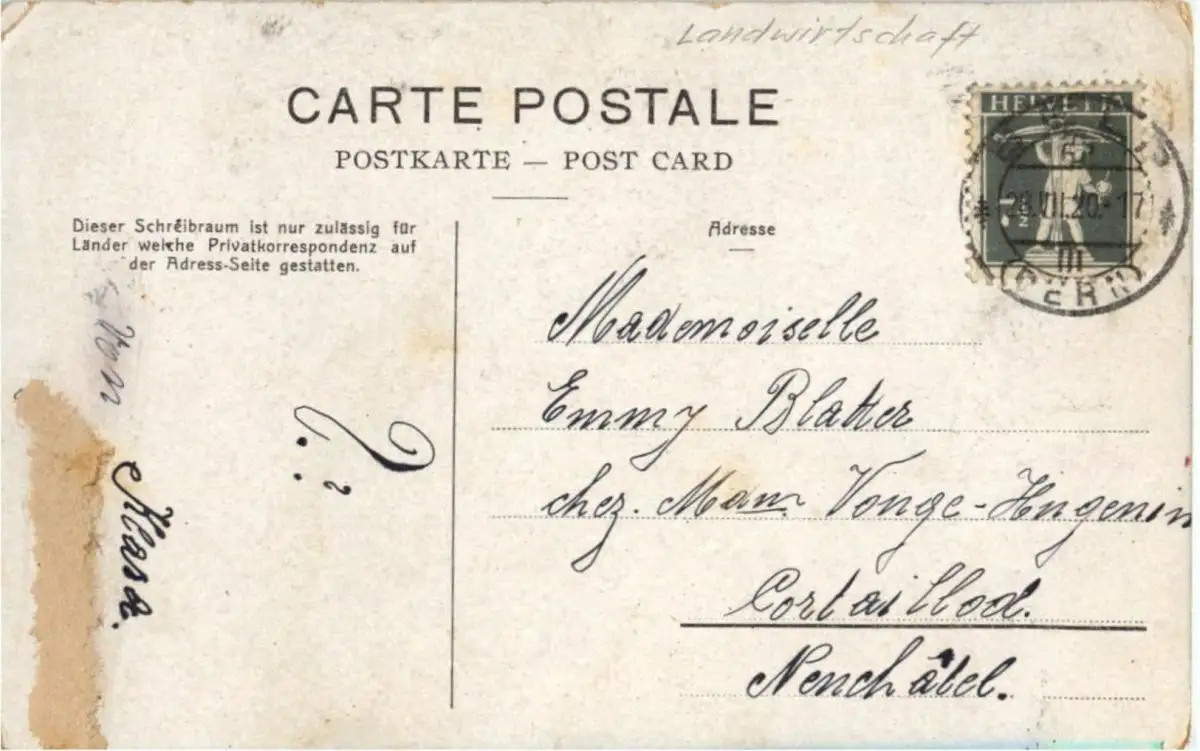 Landwirtschaft
CARTE POSTALE
POSTKARTE — POST CARD
HELVETIA
(BERN)
III
Dieser Schreibraum ist nur zulässig für
Länder welche Privatkorrespondenz auf
der Adress-Seite gestatten.
Adresse
Mademoiselle
Emmy Blatter
chez. Mam. Vonge-Hugenin
Cortaillod.
Neuchâtel.